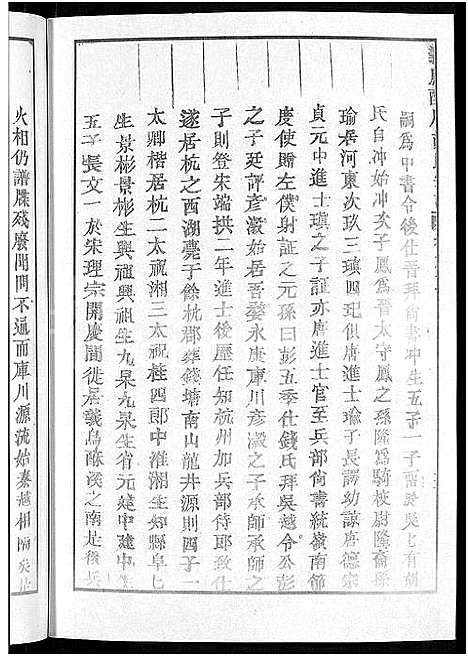 嗣爲中書令後仕晉拜尚書冲生五子一子
氏自冲始冲亥子鳳爲晉太守鳳之孫隆爲騎校尉隆裔孫
瑜居河東次玖三瑱四玘俱唐進士瑜子長諤幼諒唐德宗
貞元中進士瑱之子証亦唐進士官至兵部尚書統嶺南節
度使贈左僕射証之元孫曰彭五季仕錢氏拜吳越令公彭
之子廷評彥澂始居吾婺永庚庫川彦澂之子承師承師之
子則登朱端拱二年進士後歷任知杭州加兵部侍郎致仕
遂居杭之西湖薨于餘杭郡葬錢塘南山龍井源則四子一
太卿楷居杭二太祝湘三太祝桂四郎中淮湘生知縣阜七
生景彬景彬生興祖興祖生九杲九杲生省元建中建中生
五子長文一於宋理宗開慶間徙居義烏酥溪之南是後兵
火相仍譜牒殘廢聞問不通而庫川源流始秦越相